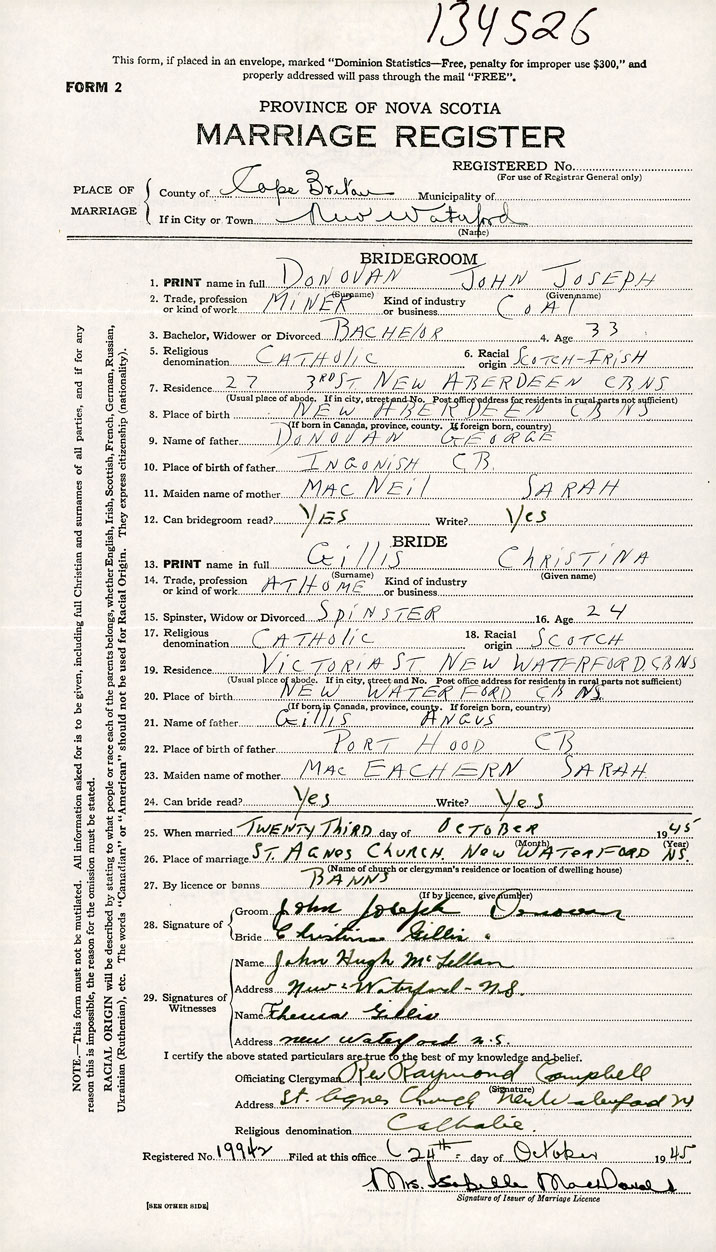 134526
This form, if placed in an envelope, marked "Dominion Statistics—Free, penalty for improper use $300," and
properly addressed will pass through the mail "FREE".
FORM 2
PROVINCE OF NOVA SCOTIA
MARRIAGE REGISTER
REGISTERED No.
(For use of Registrar General only)
PLACE OF MARRIAGE
County of Cape Breton Municipality of
If in City or Town New Waterford
(Name)
BRIDEGROOM
1. PRINT name in full DONOVAN JOHN JOSEPH
(Surname) (Given name)
2. Trade, profession or kind of work MINER Kind of industry or business COAL
3. Bachelor, Widower or Divorced BACHELOR 4. Age 33
5. Religious denomination CATHOLIC 6. Racial origin SCOTCH-IRISH
7. Residence 27 3RD ST NEW ABERDEEN CB NS
(Usual place of abode. If in city, street and No. Post office address for residents in rural parts not sufficient)
8. Place of birth NEW ABERDEEN CB NS
(If born in Canada, province, county. If foreign born, country)
9. Name of father DONOVAN GEORGE
10. Place of birth of father INGONISH CB.
11. Maiden name of mother MAC NEIL SARAH
12. Can bridegroom read? YES Write? Yes
BRIDE
13. PRINT name in full Gillis CHRISTINA
(Surname) (Given name)
14. Trade, profession or kind of work AT HOME Kind of industry or business
15. Spinster, Widow or Divorced SPINSTER 16. Age 24
17. Religious denomination CATHOLIC 18. Racial origin SCOTCH
19. Residence VICTORIA ST. NEW WATERFORD, CB NS
(Usual place of abode. If in city, street and No. Post office address for residents in rural parts not sufficient)
20. Place of birth NEW WATERFORD CB NS.
(If born in Canada, province, county. If foreign born, country)
21. Name of father Gillis ANGUS
22. Place of birth of father PORT HOOD CB
23. Maiden name of mother MAC EACHERN SARAH
24. Can bride read? Yes Write? Yes
25. When married TWENTY THIRD day of OCTOBER 1945
(Month) (Year)
26. Place of marriage ST. AGNES CHURCH. NEW WATERFORD NS.
(Name of church or clergyman's residence or location of dwelling house)
27. By licence or banns BANNS
(If by licence, give number)
28. Signature of
Groom John Joseph Donovan
Bride Christina Gillis
29. Signatures of Witnesses
Name John Hugh McLellan
Address New Waterford - N.S.
Name Theresa Gillis
Address new Waterford n.s.
I certify the above stated particulars are true to the best of my knowledge and belief.
Officiating Clergyman Rev Raymond Campbell
(Signature)
Address St. Agnes Church New Waterford
Religious denomination Catholic.
Registered No. 19942 Filed at this office 24th day of October 1945
Mrs. Isabelle MacDonald
Signature of Issuer of Marriage Licence
[SEE OTHER SIDE]
NOTE.—This form must not be mutilated. All information asked for is to be given, including full Christian and surnames of all parties, and if for any
reason this is impossible, the reason for the omission must be stated.
RACIAL ORIGIN will be described by stating to what people or race each of the parents belongs, whether English, Irish, Scottish, French, German, Russian,
Ukrainian (Ruthenian), etc. The words "Canadian" or "American" should not be used for Racial Origin. They express citizenship (nationality).